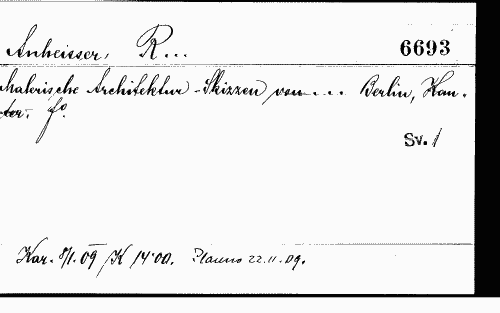 Anheisser, R... 6693
Malerische Architektur-Skizzen von.... Berlin, Kan-
ter. fo.
Sv. 1
Kar. 8/I.09 /K 14.00. 22.11.09.